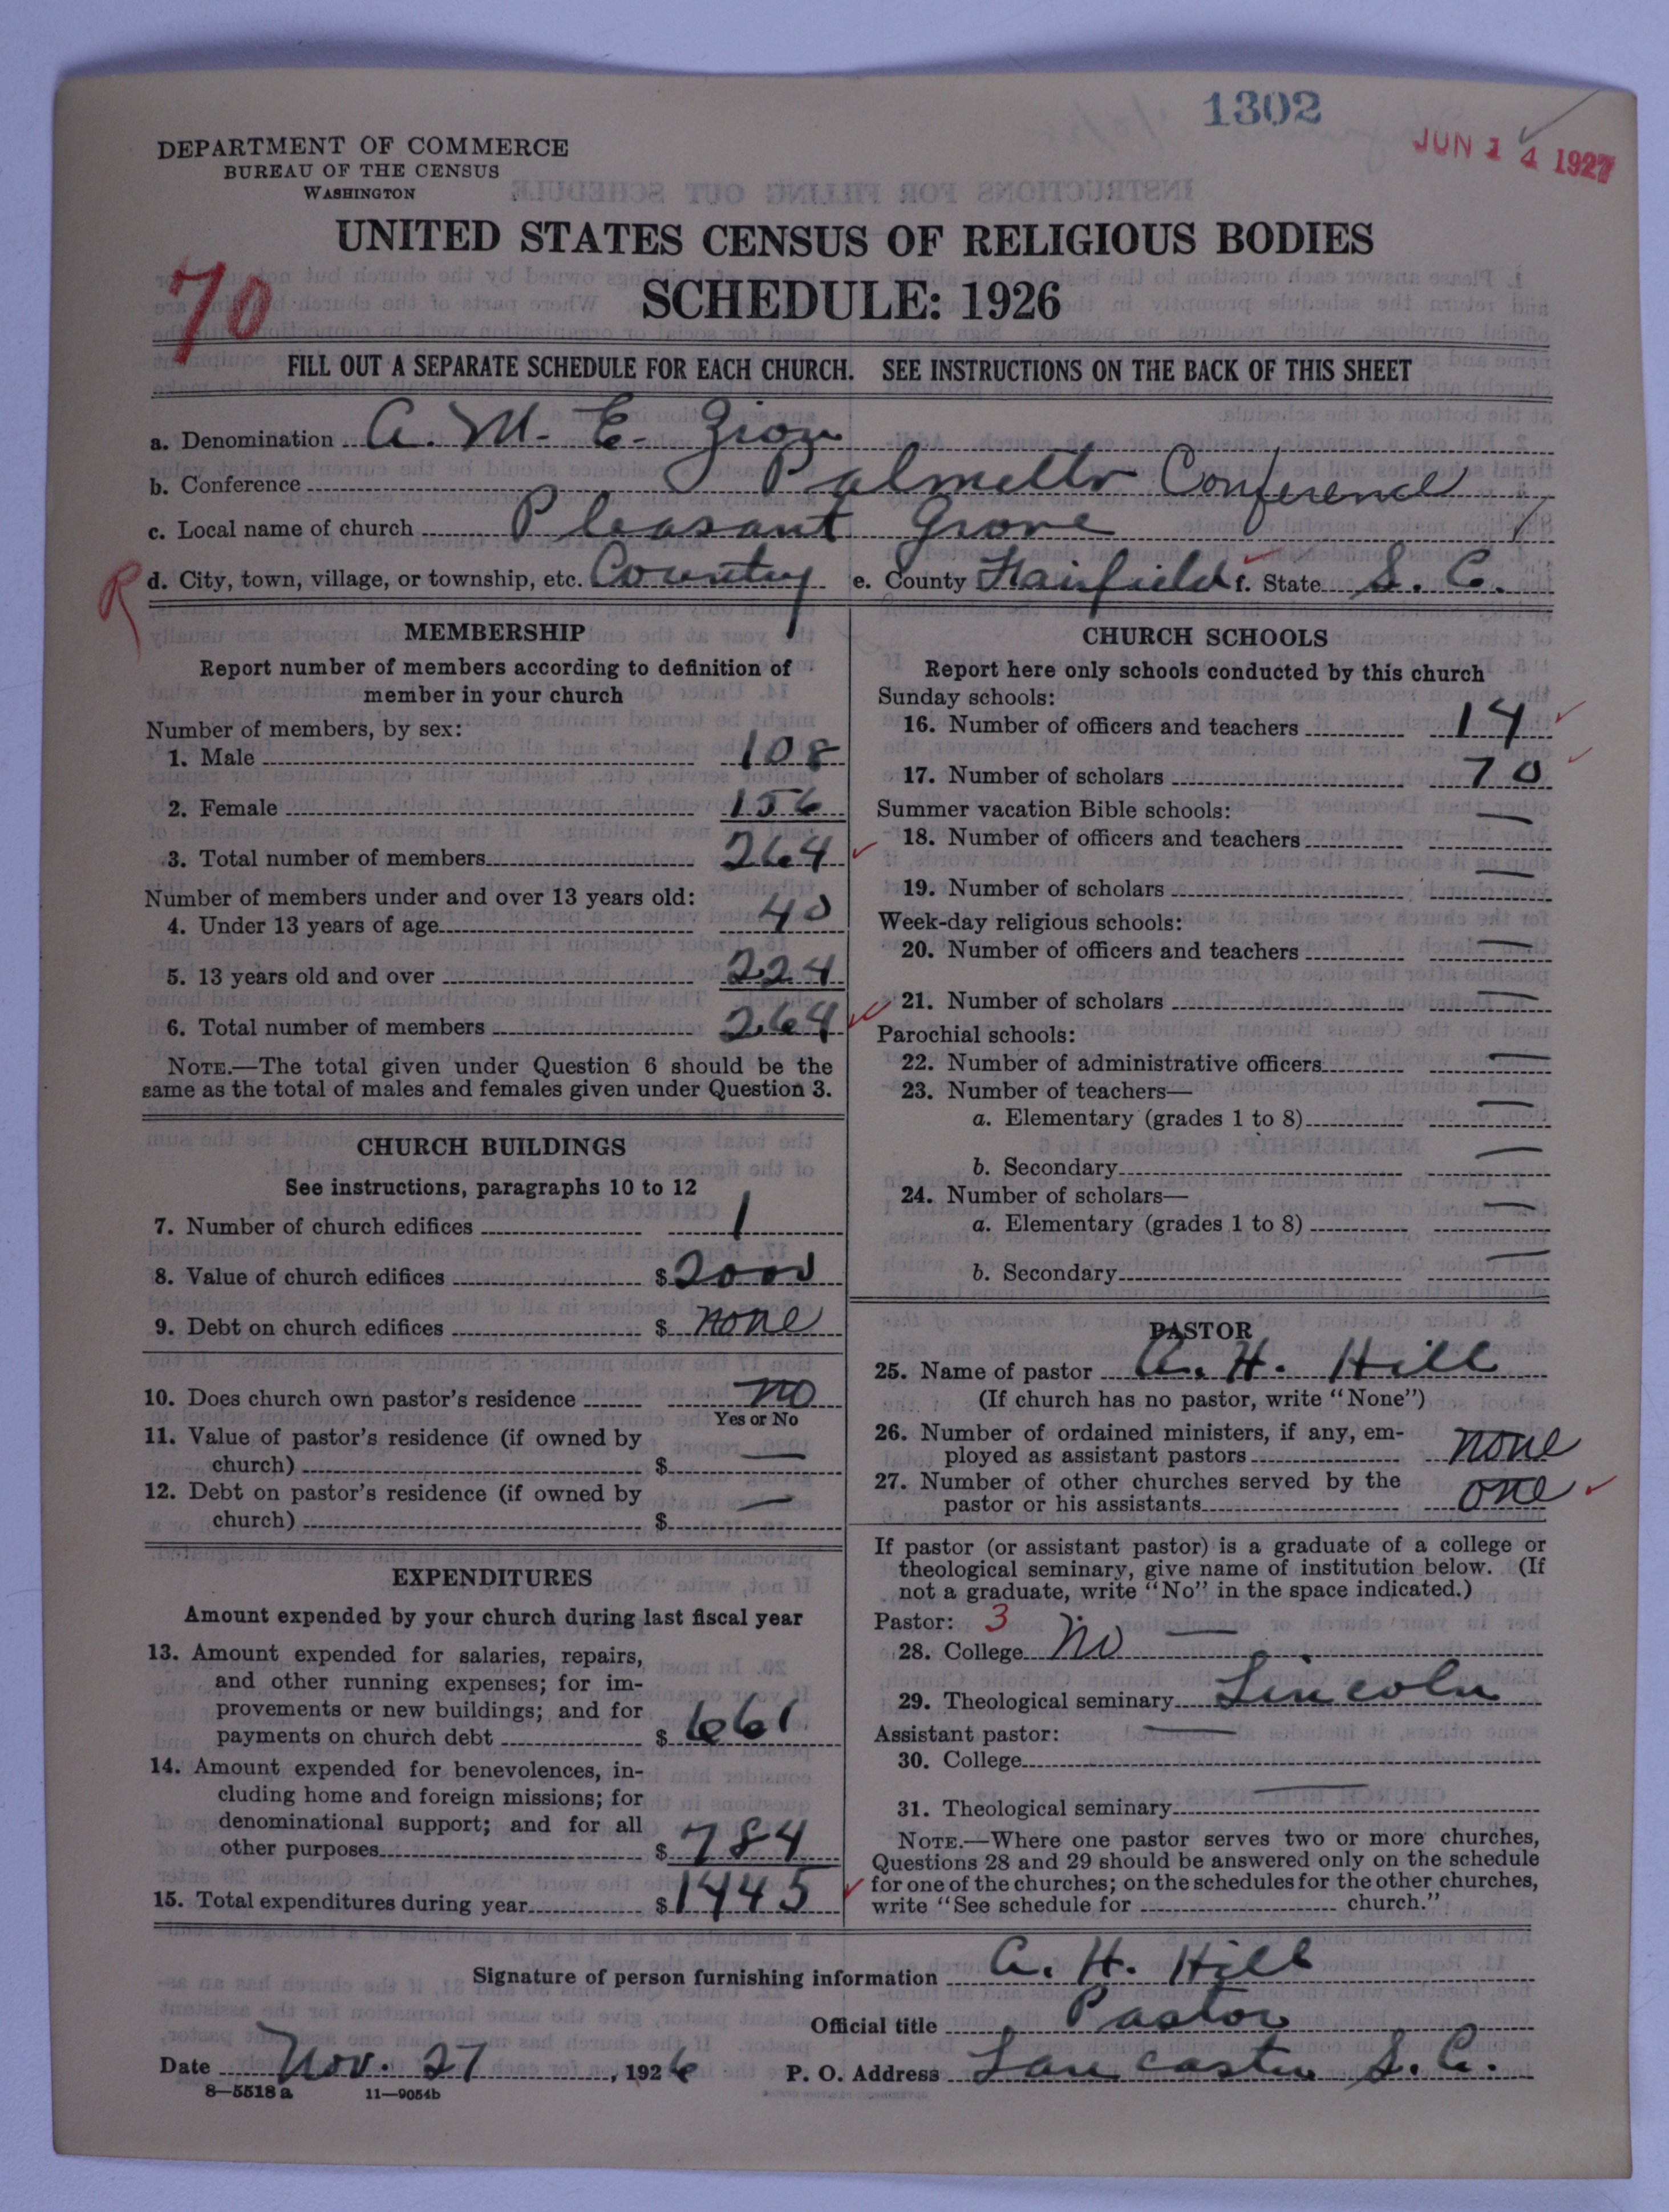 1302
JUN 14 1927
DEPARTMENT OF COMMERCE
BUREAU OF THE CENSUS
WASHINGTON
UNITED STATES CENSUS OF RELIGIOUS BODIES
SCHEDULE: 1926
70
FILL OUT A SEPARATE SCHEDULE FOR EACH CHURCH. SEE INSTRUCTIONS ON THE BACK OF THIS SHEET
a. Denomination A. M. E. Zion
b. Conference Palmetto Conference
c. Local name of church Pleasant Grove
R d. City, town, village, or township, etc. Country e. County Fairfield f. State S. C.
MEMBERSHIP
Report number of members according to definition of
member in your church
Number of members, by sex:
1. Male 108
2. Female 156
3. Total number of members 264
Number of members under and over 13 years old:
4. Under 13 years of age 40
5. 13 years old and over 224
6. Total number of members 264
NOTE.—The total given under Question 6 should be the
same as the total of males and females given under Question 3.
CHURCH BUILDINGS
See instructions, paragraphs 10 to 12
7. Number of church edifices 1
8. Value of church edifices $ 2000
9. Debt on church edifices $ none
10. Does church own pastor's residence no
Yes or No
11. Value of pastor's residence (if owned by
church) $ —
12. Debt on pastor's residence (if owned by
church) $ —
EXPENDITURES
Amount expended by your church during last fiscal year
13. Amount expended for salaries, repairs,
and other running expenses; for im-
provements or new buildings; and for
payments on church debt $ 661
14. Amount expended for benevolences, in-
cluding home and foreign missions; for
denominational support; and for all
other purposes $ 784
15. Total expenditures during year $ 1445
CHURCH SCHOOLS
Report here only schools conducted by this church
Sunday schools:
16. Number of officers and teachers 14
17. Number of scholars 70
Summer vacation Bible schools:
18. Number of officers and teachers —
19. Number of scholars —
Week-day religious schools:
20. Number of officers and teachers —
21. Number of scholars —
Parochial schools:
22. Number of administrative officers —
23. Number of teachers—
a. Elementary (grades 1 to 8) —
b. Secondary —
24. Number of scholars—
a. Elementary (grades 1 to 8) —
b. Secondary —
PASTOR
25. Name of pastor A. H. Hill
(If church has no pastor, write "None")
26. Number of ordained ministers, if any, em-
ployed as assistant pastors none
27. Number of other churches served by the
pastor or his assistants one
If pastor (or assistant pastor) is a graduate of a college or
theological seminary, give name of institution below. (If
not a graduate, write "No" in the space indicated.)
Pastor: 3
28. College No —
29. Theological seminary Lincoln
Assistant pastor: —
30. College
31. Theological seminary —
NOTE.—Where one pastor serves two or more churches,
Questions 28 and 29 should be answered only on the schedule
for one of the churches; on the schedules for the other churches,
write "See schedule for church."
Signature of person furnishing information A. H. Hill
Official title Pastor
Date Nov. 27, 1926 P. O. Address Lancaster S. C.
8—5518 a 11—9054b